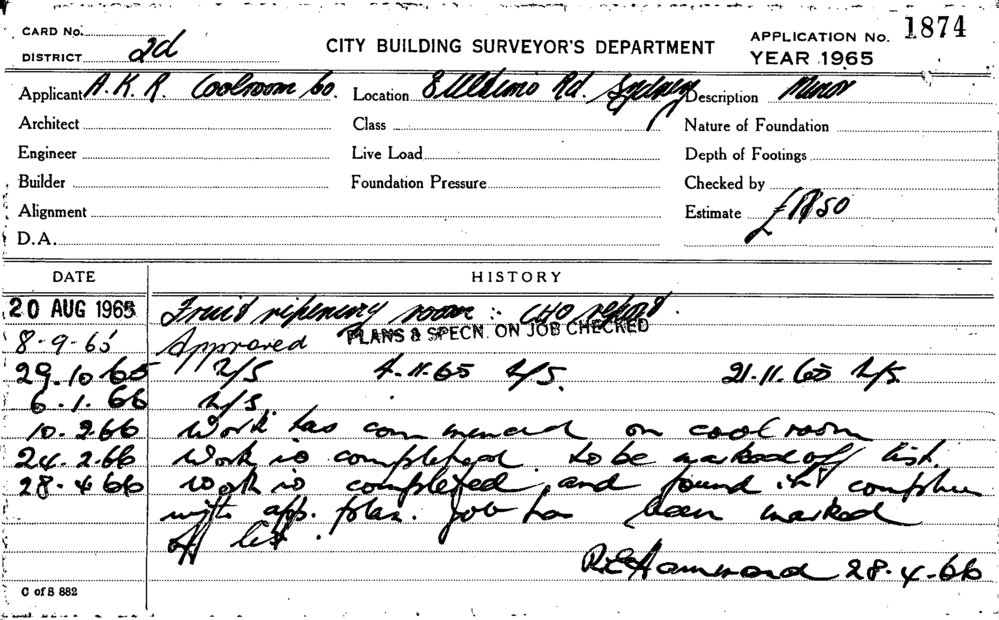 CARD No:
DISTRICT 2d
CITY BUILDING SURVEYOR'S DEPARTMENT
APPLICATION No. 1874
YEAR 1965
Applicant A.K.R. Coolroom Co. Location Ultimo Rd. Sydney Description Minor
Architect Class Nature of Foundation
Engineer Live Load Depth of Footings
Builder Foundation Pressure Checked by
Alignment Estimate
D.A.
DATE HISTORY
20 AUG 1965 Fruit ripening room : CHO report.
8-9-65 Approved PLANS & SPECN. ON JOB CHECKED
29.10.65 N/S 4.11.65 N/S. 21.11.65 N/S.
6.1.66 N/S.
10.2.66 Work has commenced on cool room
24.2.66 Work is completed. to be marked off list.
28.4.66 work is completed and found complies
with app. plan. Job has been marked
off list.
R.E. Hammond 28.4.66
C of S 882